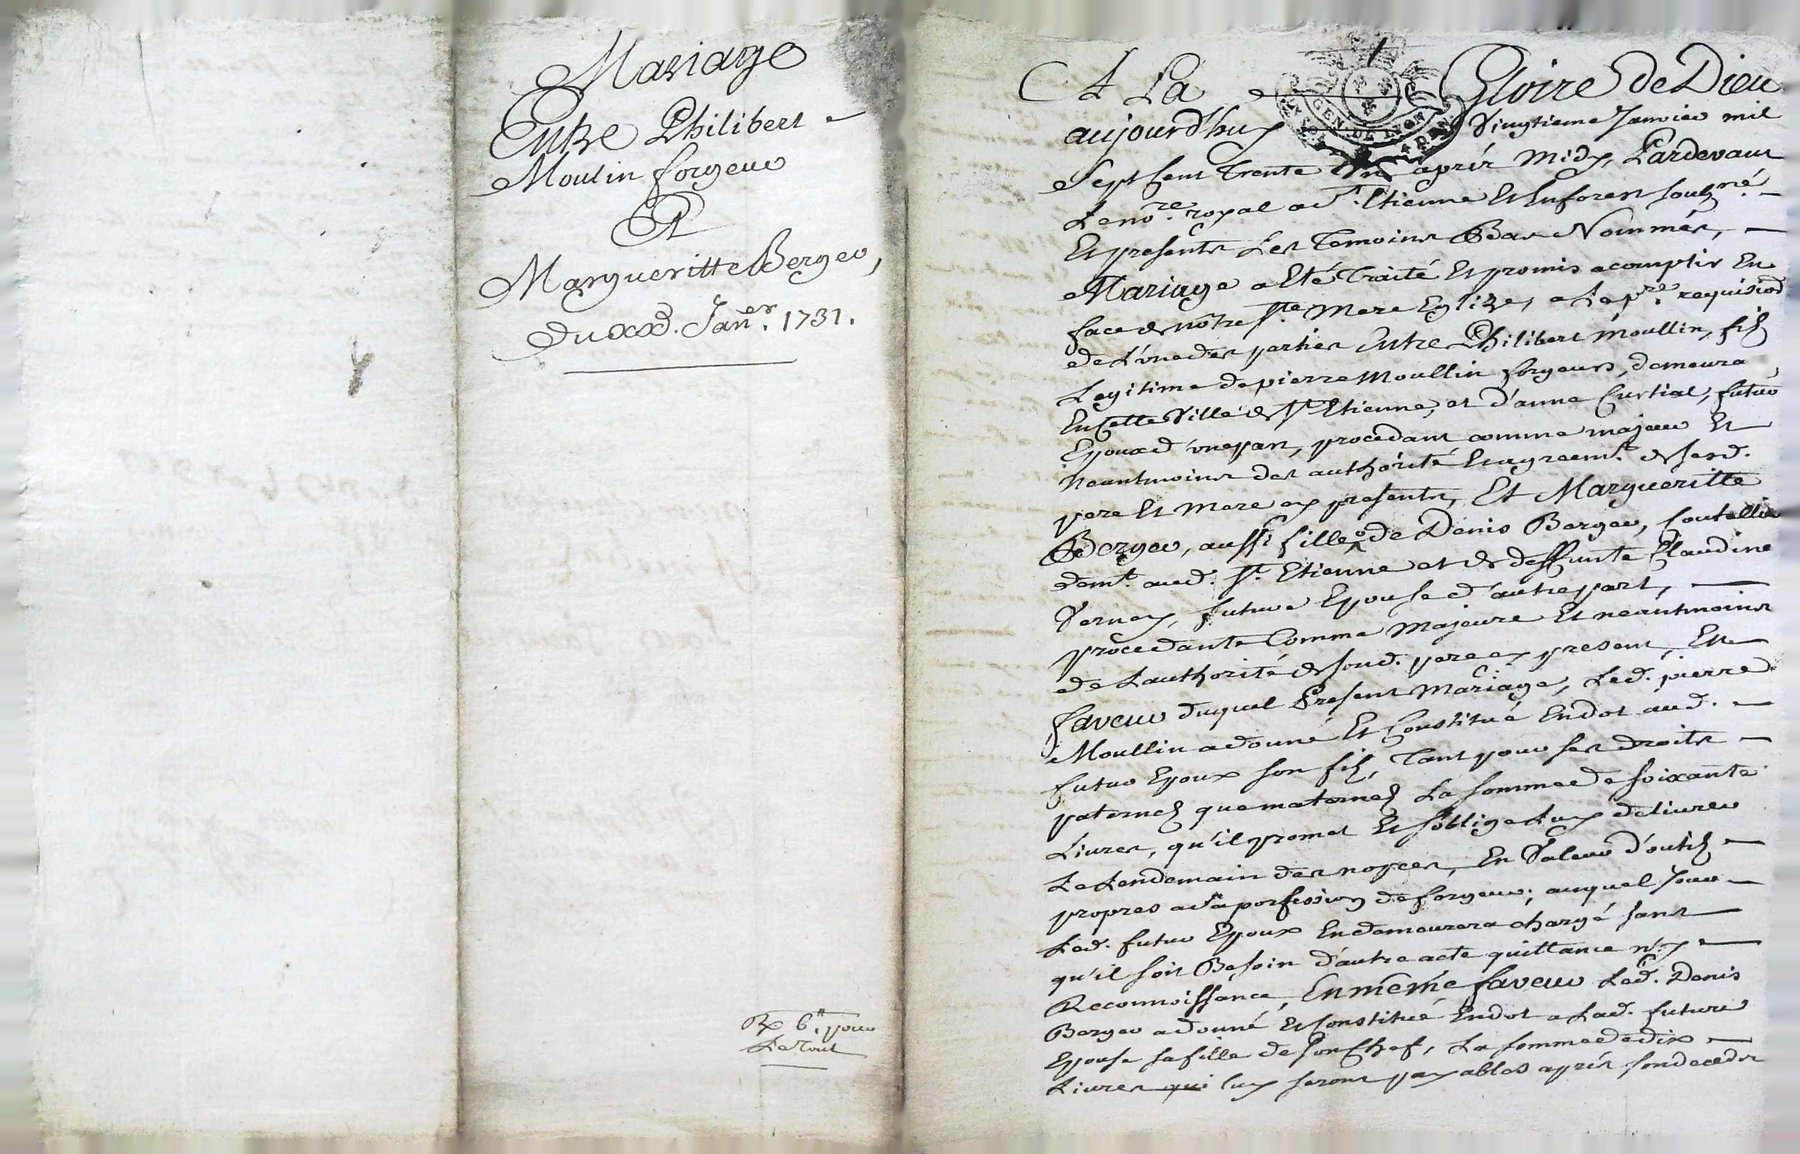 Mariage
Entre Philibert
Moulin forgeur
Et
Margueritte Berger,
Du xxe. Janer. 1731.
Rx 6tt. pour
Le Tout
A La Gloire de Dieu
GEN. DE LYON
aujourd'huy Vingtieme Janvier mil
Sept Cent Trente Un aprés Midy, Pardevant
Le nore. royal a St. Etienne Et Enforest soubzné.
Et presents Les Temoins Bas Nommés,
Mariage a Eté Traité Et promis acomplir En
face de nôtre Ste. Mere Eglize, a La pre. requisiôn
de L'une des parties Entre Philibert Moullin, fils
Legitime de pierre Moullin forgeurs, demeurant
En Cette Ville de St. Etienne, et d'anne Curtial, futur
Epoux d'une part, procedant comme majeur Et
neantmoins des authôrité Et agreemt. de sesd.
pere Et Mere cy presents, Et Margueritte
Berger, aussi fille de Denis Berger, Coutellier
demt. aud. St. Etienne et de deffunte Claudine
Verney, future Epouse d'autre part,
procedante Comme Majeure Et neantmoins
de Lauthorité de sond. pere cy present, En
faveur duquel Present Mariage, Led. pierre
Moullin a donné Et Constitué En dot aud.
futur Epoux son fils, Tant pour ses droits
paternels que maternels La somme de soixante
Livres, qu'il promet Et s'oblige Luy délivrer
Le Lendemain des nopces, En Valeur d'outils
propres a sa porfession de forgeur; auquel Jour
Led. futur Epoux En demeurera chargé sans
qu'il soit Besoin d'autre acte quittance ny
Reconnoissance, En méme faveur Led. Denis
Berger a donné Et Constitué En dot a Lad. future
Epouse sa fille de son Chef, La somme de dix
Livres qui Luy seront payables aprés son decedz